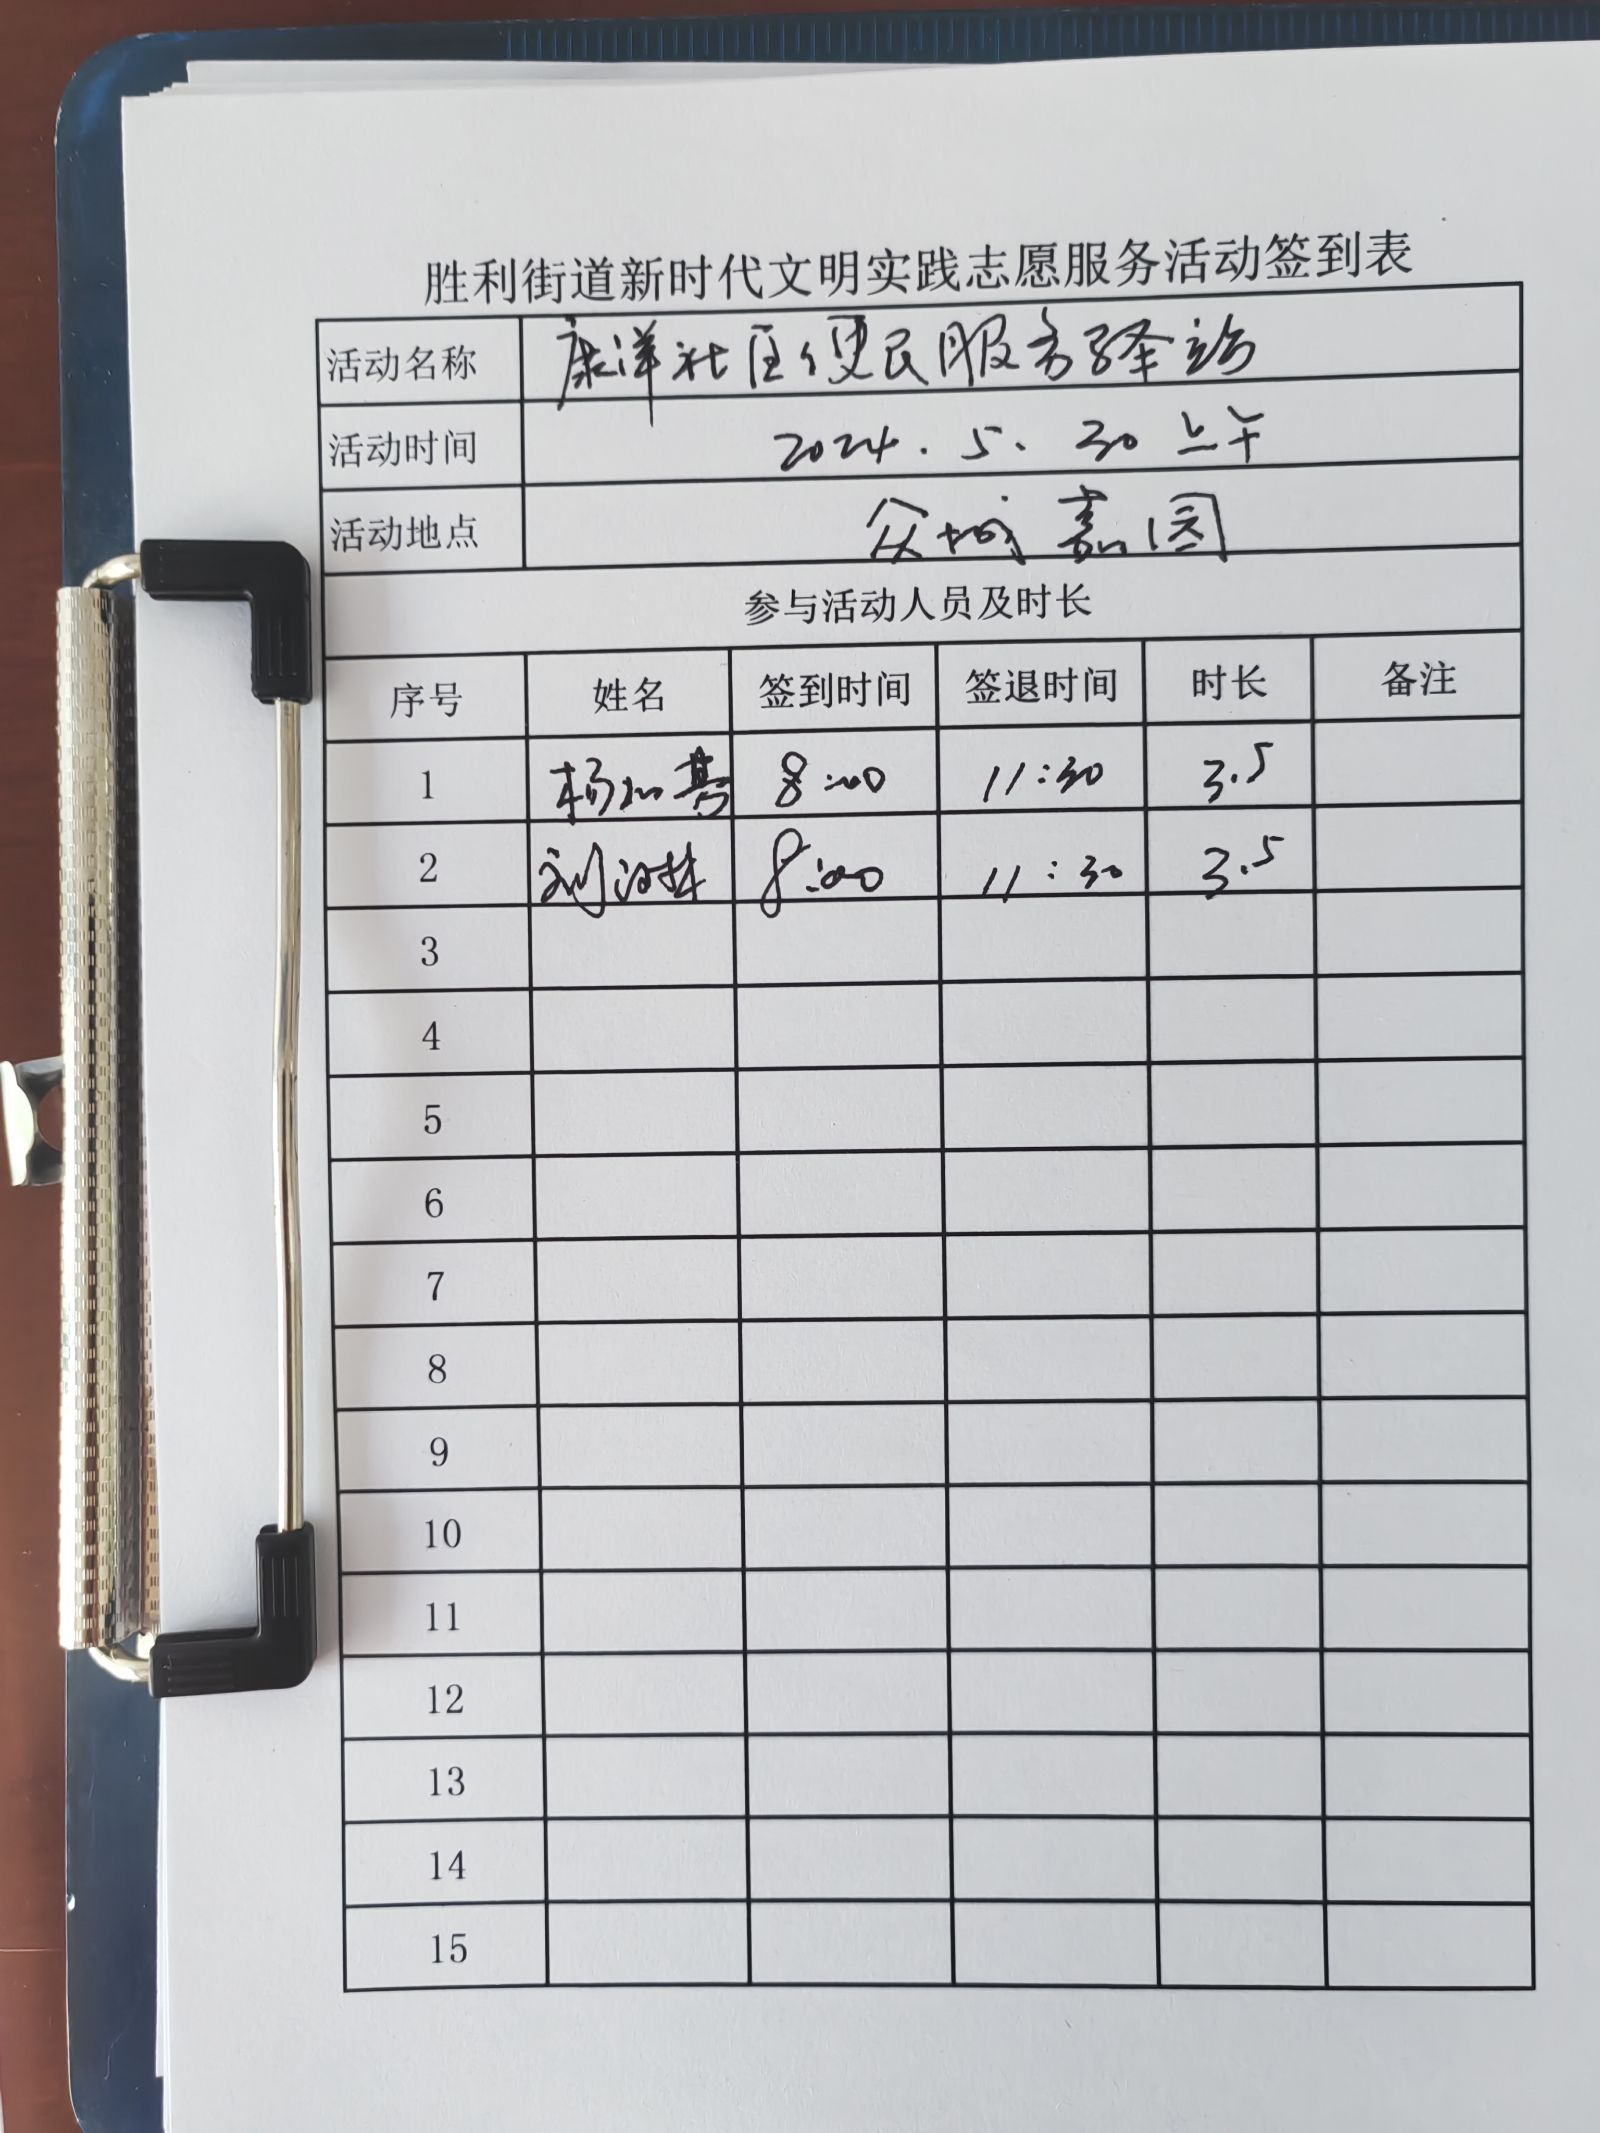 胜利街道新时代文明实践志愿服务活动签到表
活动名称 康洋社区便民服务驿站
活动时间 2024.5.30上午
活动地点 众城嘉园
参与活动人员及时长
序号 姓名 签到时间 签退时间 时长 备注
1 杨 8:00 11:30 3.5
2 刘 8:00 11:30 3.5
3
4
5
6
7
8
9
10
11
12
13
14
15